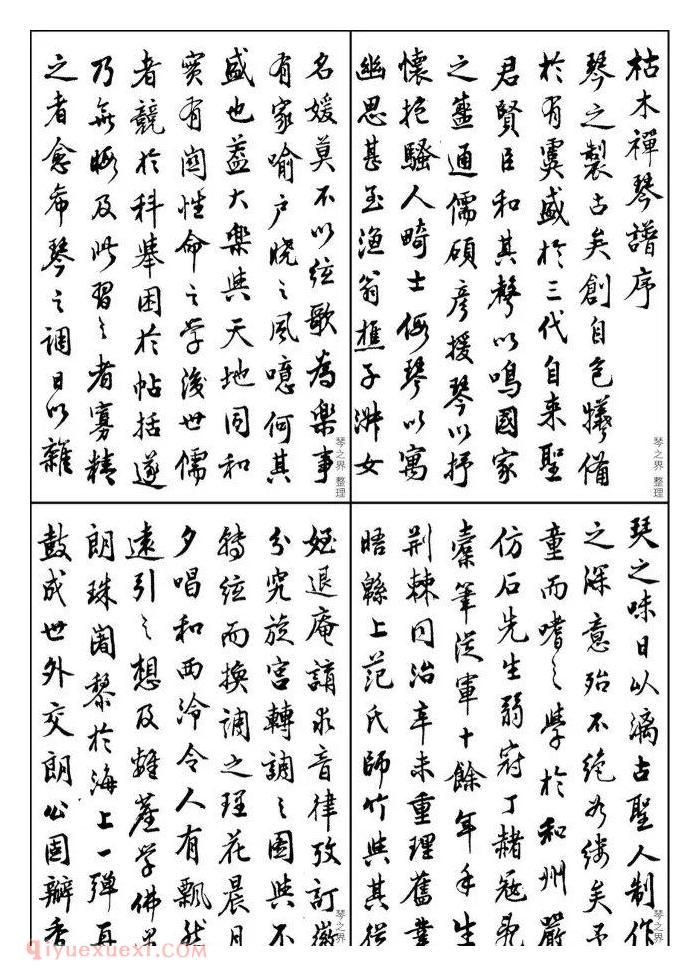 枯木禪琴譜序
琴之製古矣創自包犧備
於有虞盛於三代自来聖
君賢臣和其聲以鳴國家
之盛通儒碩彦援琴以抒
懷抱騷人畸士假琴以寓
幽思甚至漁翁樵子淑女
名媛莫不以弦歌為樂事
有家喻户曉之風噫何其
盛也盖大樂與天地同和
實有關性命之学後世儒
者競於科舉困於帖括遂
乃無暇及此習之者寡精
之者愈希琴之調日以雜
琴之味日以漓古聖人制作
之深意殆不絶如縷矣
童而嗜之學於和州嚴
仿石先生弱冠丁赭寇
橐筆從軍十餘年手生
荆棘同治辛未重理舊業
晤緜上范氏師竹與其從
姪退庵請求音律攷訂
分究旋宫轉調之圖與不
轉弦而換調之理花晨月
夕唱和西泠令人有飄然
遠引之想及離塵学佛
朗珠闍黎於海上一彈再
鼓成世外交朗公固瓣香
琴之界 整理
琴之界 整理
琴之界
琴之界
qiyuexuexi.com